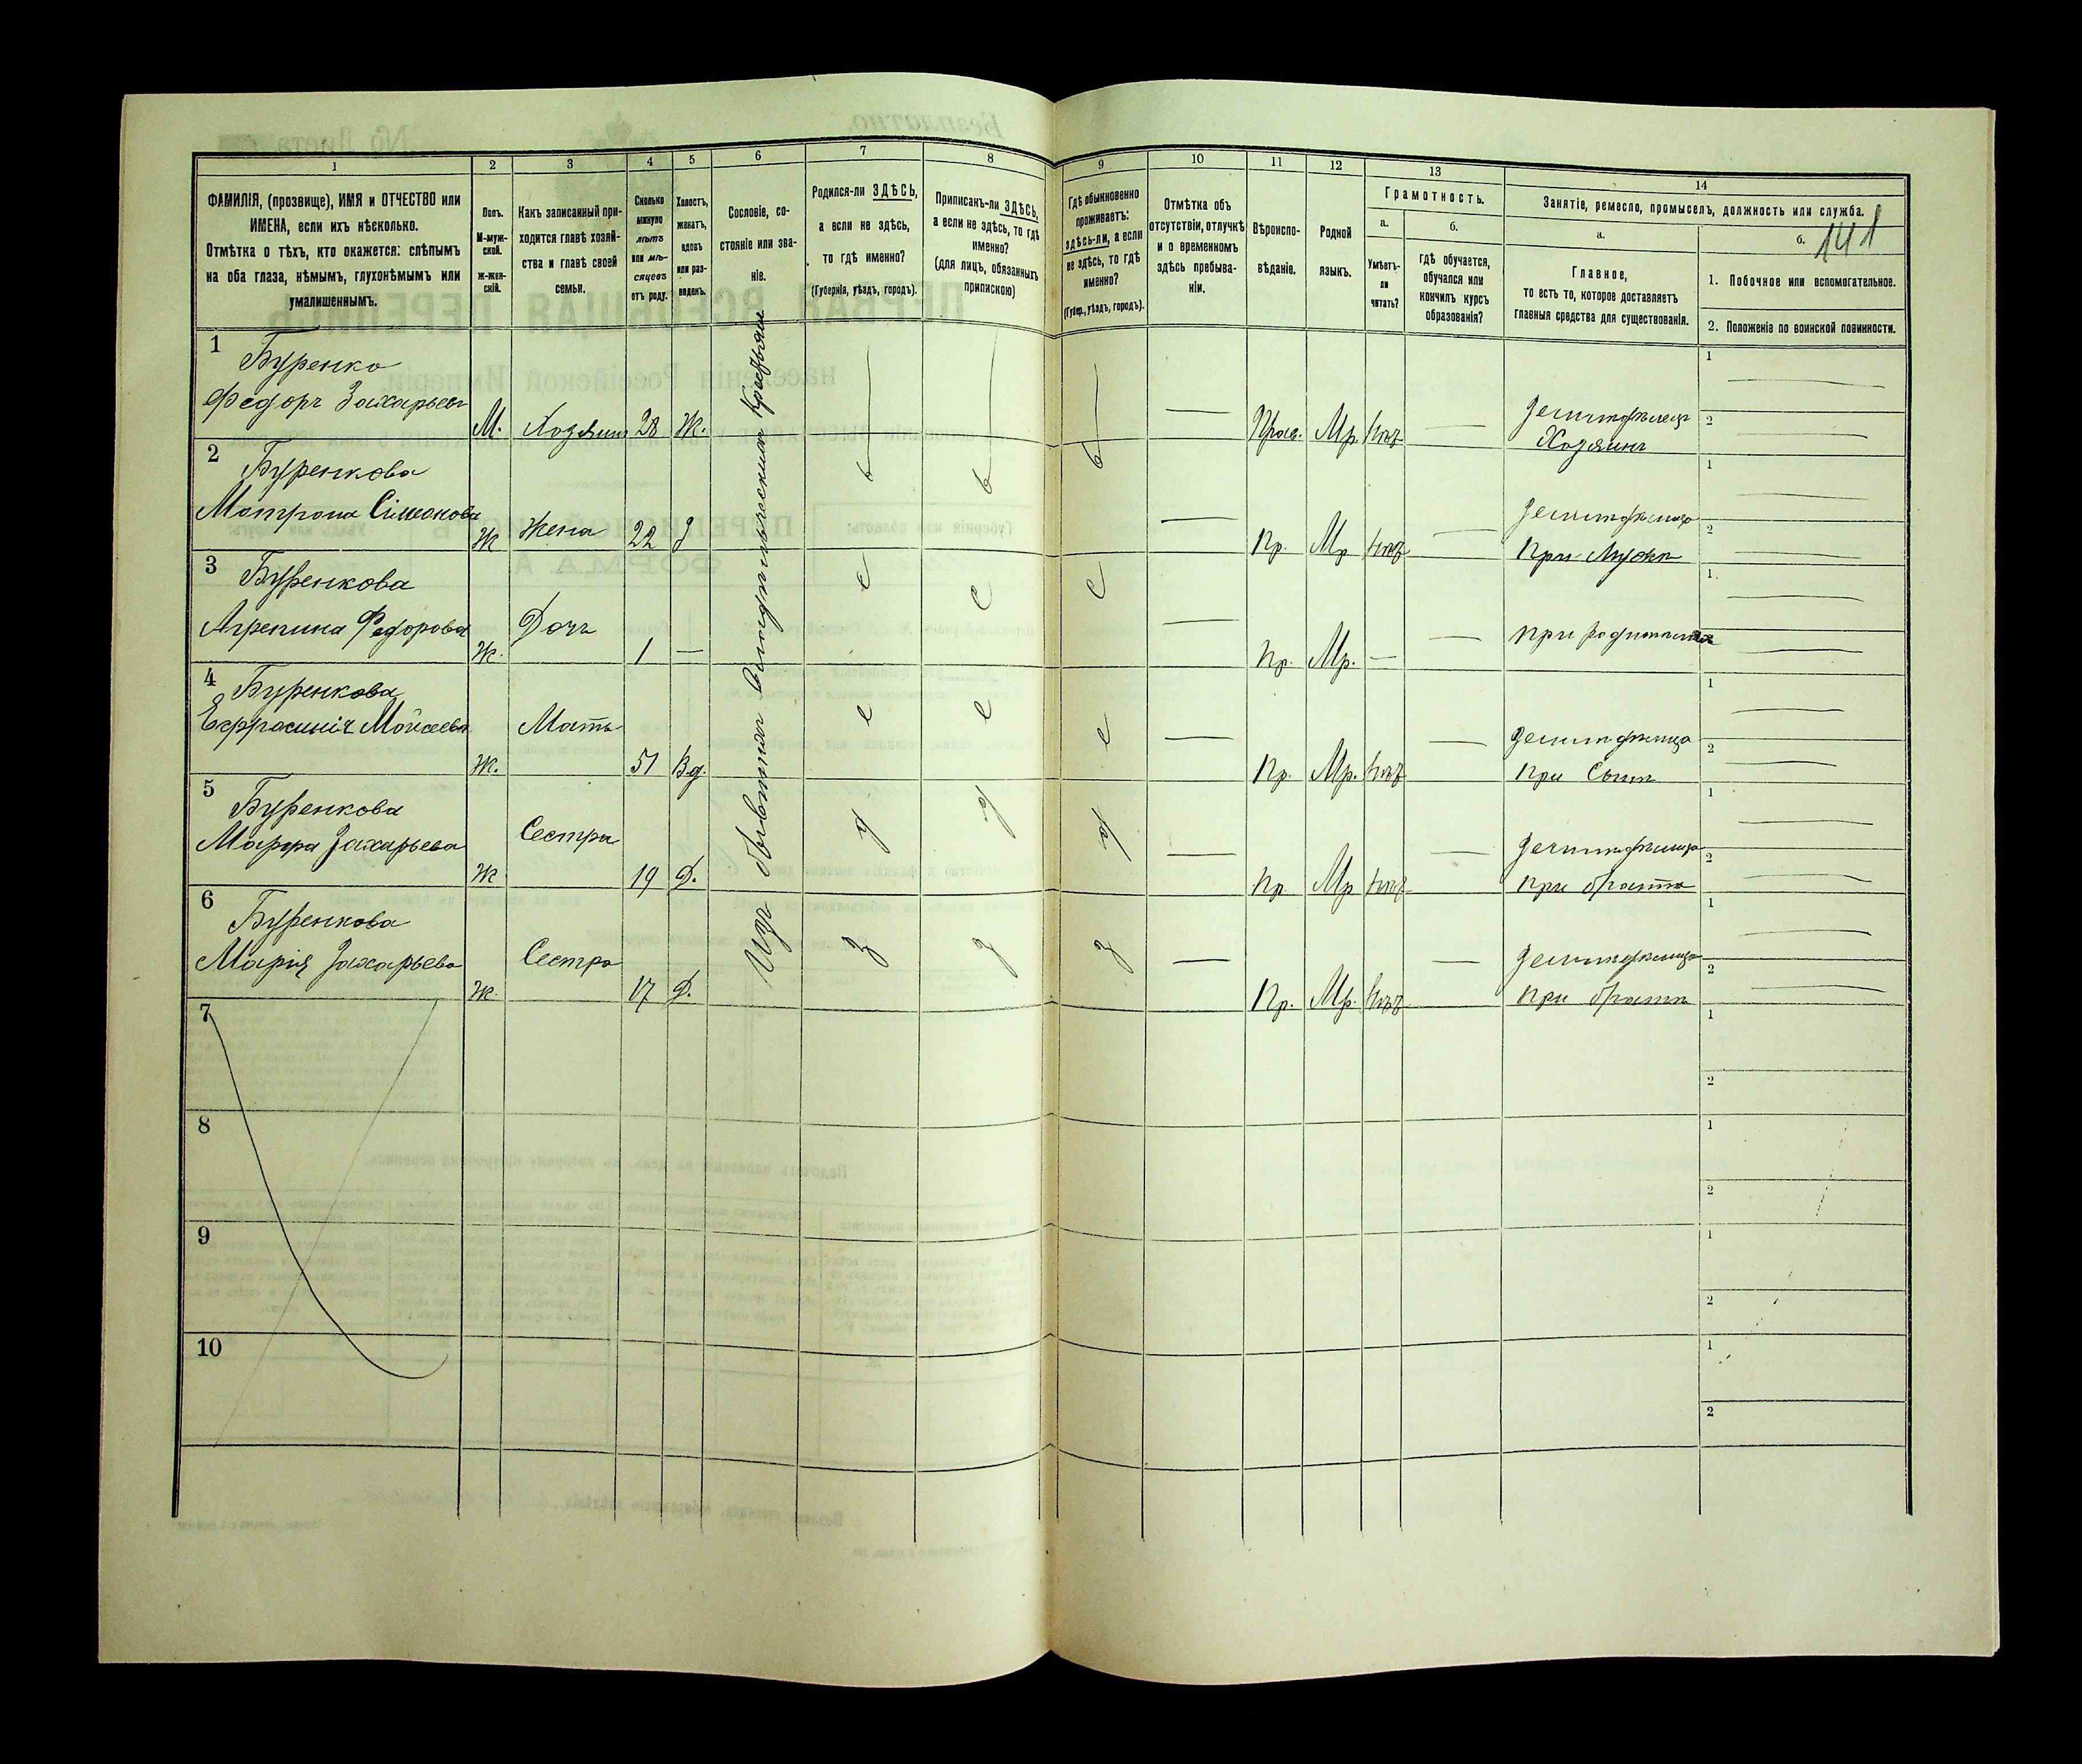 1
2
3
4
5
6
7
8
9
10
11
12
13
14
141
ФАМИЛІЯ, (прозвище), ИМЯ и ОТЧЕСТВО или
ИМЕНА, если ихъ нѣсколько.
Отмѣтка о тѣхъ, кто окажется: слѣпымъ
на оба глаза, нѣмымъ, глухонѣмымъ или
умалишеннымъ.
Полъ.
М-муж-
ской.
ж-жен-
скій.
Какъ записанный при-
ходится главѣ хозяй-
ства и главѣ своей
семьи.
Сколько
минуло
лѣтъ
или мѣ-
сяцевъ
отъ роду.
Холостъ,
женатъ,
вдовъ
или раз-
веденъ.
Сословіе, со-
стояніе или зва-
ніе.
Родился-ли ЗДѢСЬ,
а если не здѣсь,
то гдѣ именно?
(Губернія, уѣздъ, городъ).
Приписанъ-ли ЗДѢСЬ,
а если не здѣсь, то гдѣ
именно?
(для лицъ, обязанныхъ
припискою)
Гдѣ обыкновенно
проживаетъ:
здѣсь-ли, а если
не здѣсь, то гдѣ
именно?
(Губер., уѣздъ, городъ).
Отмѣтка объ
отсутствіи, отлучкѣ
и о временномъ
здѣсь пребыва-
ніи.
Вѣроиспо-
вѣданіе.
Родной
языкъ.
Грамотность.
а.
Умѣетъ-
ли
читать?
б.
гдѣ обучается,
обучался или
кончилъ курсъ
образованія?
Занятіе, ремесло, промыселъ, должность или служба.
а.
Главное,
то есть то, которое доставляетъ
главныя средства для существованія.
б.
1. Побочное или вспомогательное.
2. Положеніе по воинской повинности.
Изъ
Крестьянъ
1
Буренко
Федоръ Захарьевъ
М. Хозяинъ 28 Ж.
Прав. Мр. нѣт
Хозяинъ
1
2
2
Буренкова
Матрона Сімеонова
Ж Жена 22 З
Пр. Мр нѣт
При Мужѣ
1
2
3
Буренкова
Агрепина Федорова
Дочь
Ж. 1 —
Пр. Мр. —
при родителяхъ
1
4
Буренкова
Ефросинія Мойсеева
Мать
Ж. 51 Вд.
Пр. Мр. нѣт
при Сынѣ
1
2
5
Буренкова
Марфа Захарьева
Сестра
Ж 19 Д.
Пр Мр нѣт
при братѣ
1
2
6
Буренкова
Марія Захарьева
Сестра
Ж. 17 Д.
Пр. Мр. нѣт
при братѣ
1
2
7
1
2
8
1
2
9
1
2
10
1
2